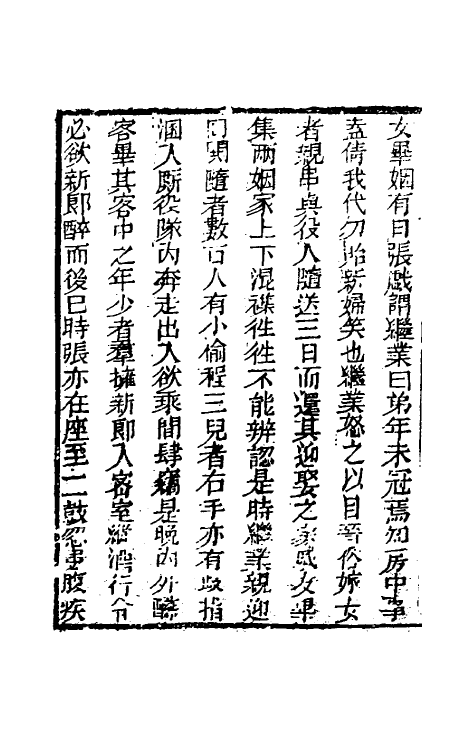 友畢姻有日張戲謂繼業曰弟年未冠焉知房中事
盍倩我代勿貽新婦笑也繼業怒之以目晉俗嫁女
者親串與役人隨送三日而還其迎娶之家戚友畢
集兩姻家上下混襍徃徃不能辨認是時繼業親迎
門閧隨者數百人有小偷程三兒者右手亦有歧指
溷入厮役隊內奔走出入欲乘間肆竊是晚內外讌
客畢其客中之年少者羣擁新郎入密室縱酒行令
必欲新郎醉而後已時張亦在座至二鼓忽患腹疾